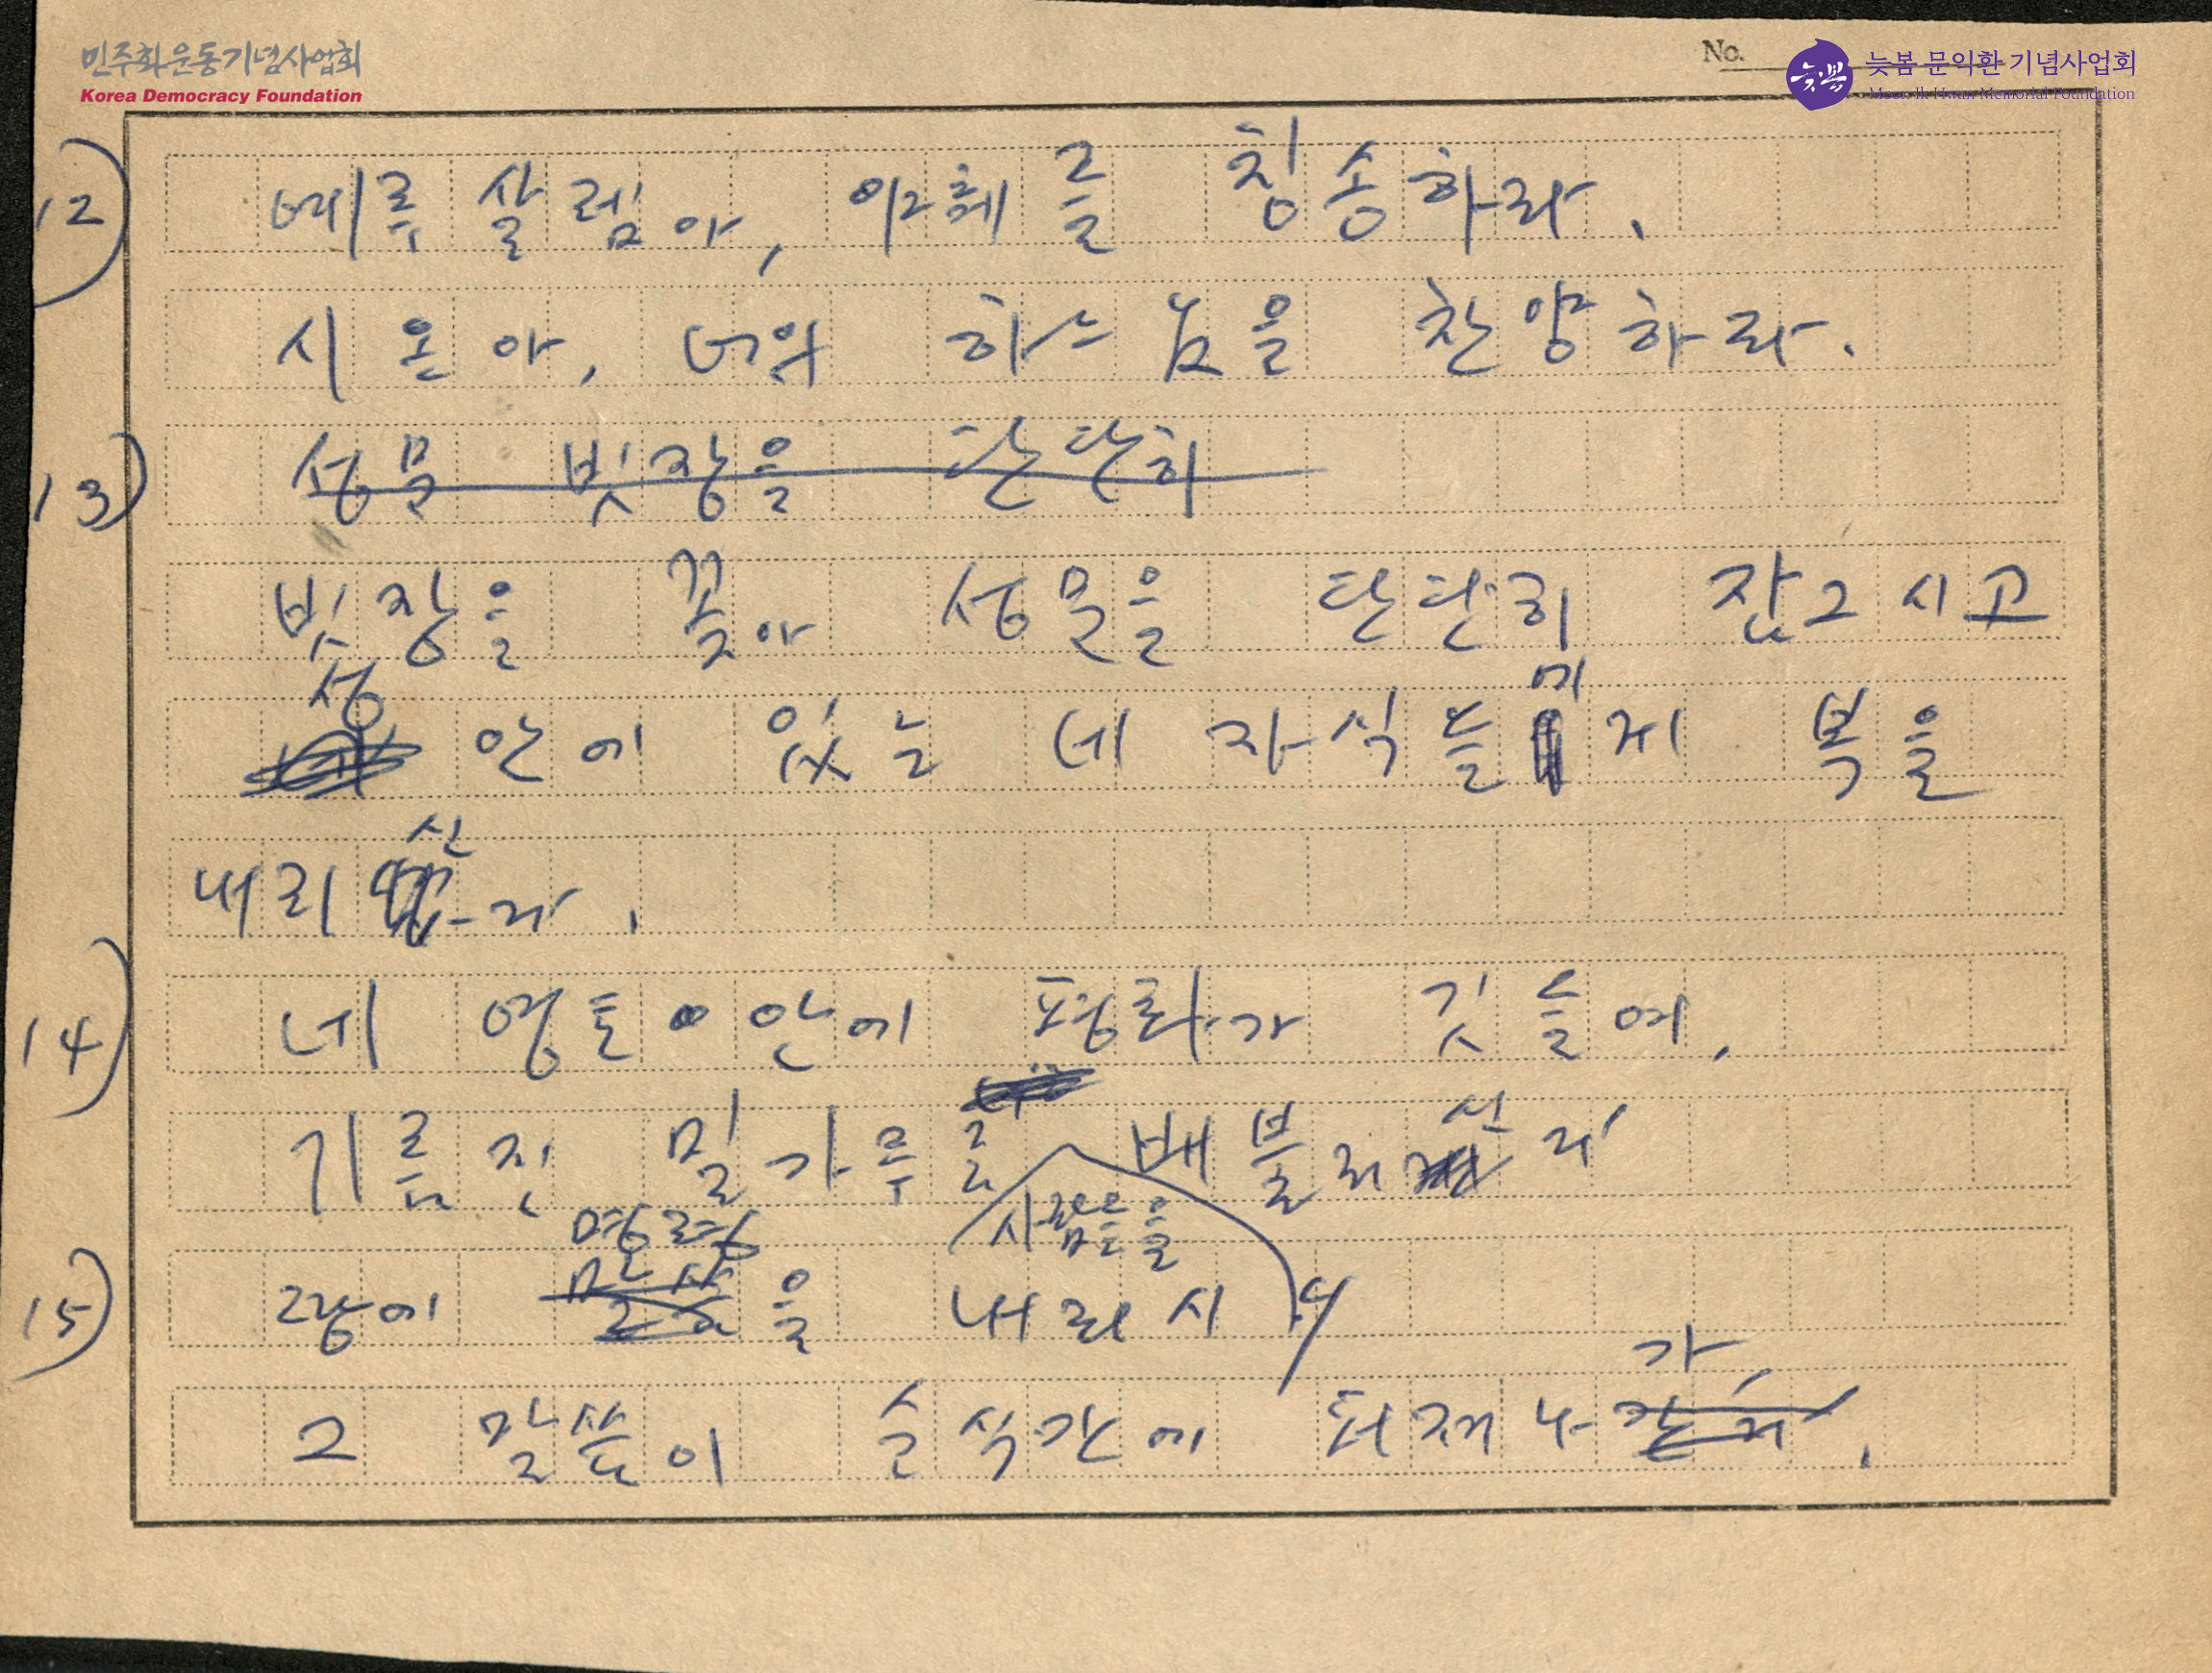 민주화운동기념사업회
Korea Democracy Foundation
No.
늦봄
늦봄 문익환 기념사업회
Moon Ik Hwan Memorial Foundation
12) 예루살렘아, 야훼를 칭송하라.
시온아, 너의 하느님을 찬양하라.
13) 성문 빗장을 단단히
빗장을 꽂아 성문을 단단히 잠그시고
성 안에 있는 네 자식들에게 복을
내리신다.
14) 네 영토 안에 평화가 깃들여,
기름진 밀가루로 배불리신다
사람들을
명령
15) 땅에 말씀을 내리시니
가,
그 말씀이 순식간에 퍼져나간다.